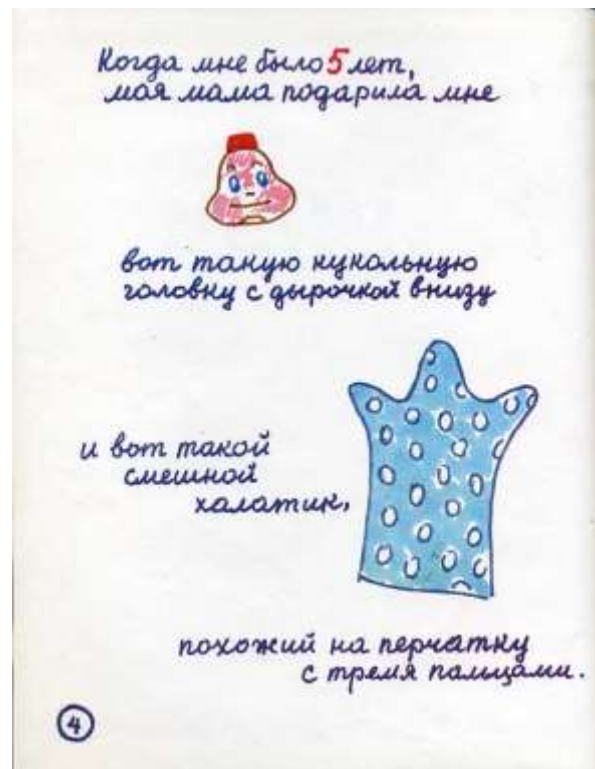 Когда мне было 5 лет,
моя мама подарила мне
вот такую кукольную
головку с дырочкой внизу
и вот такой
смешной
халатик,
похожий на перчатку
с тремя пальцами.
4